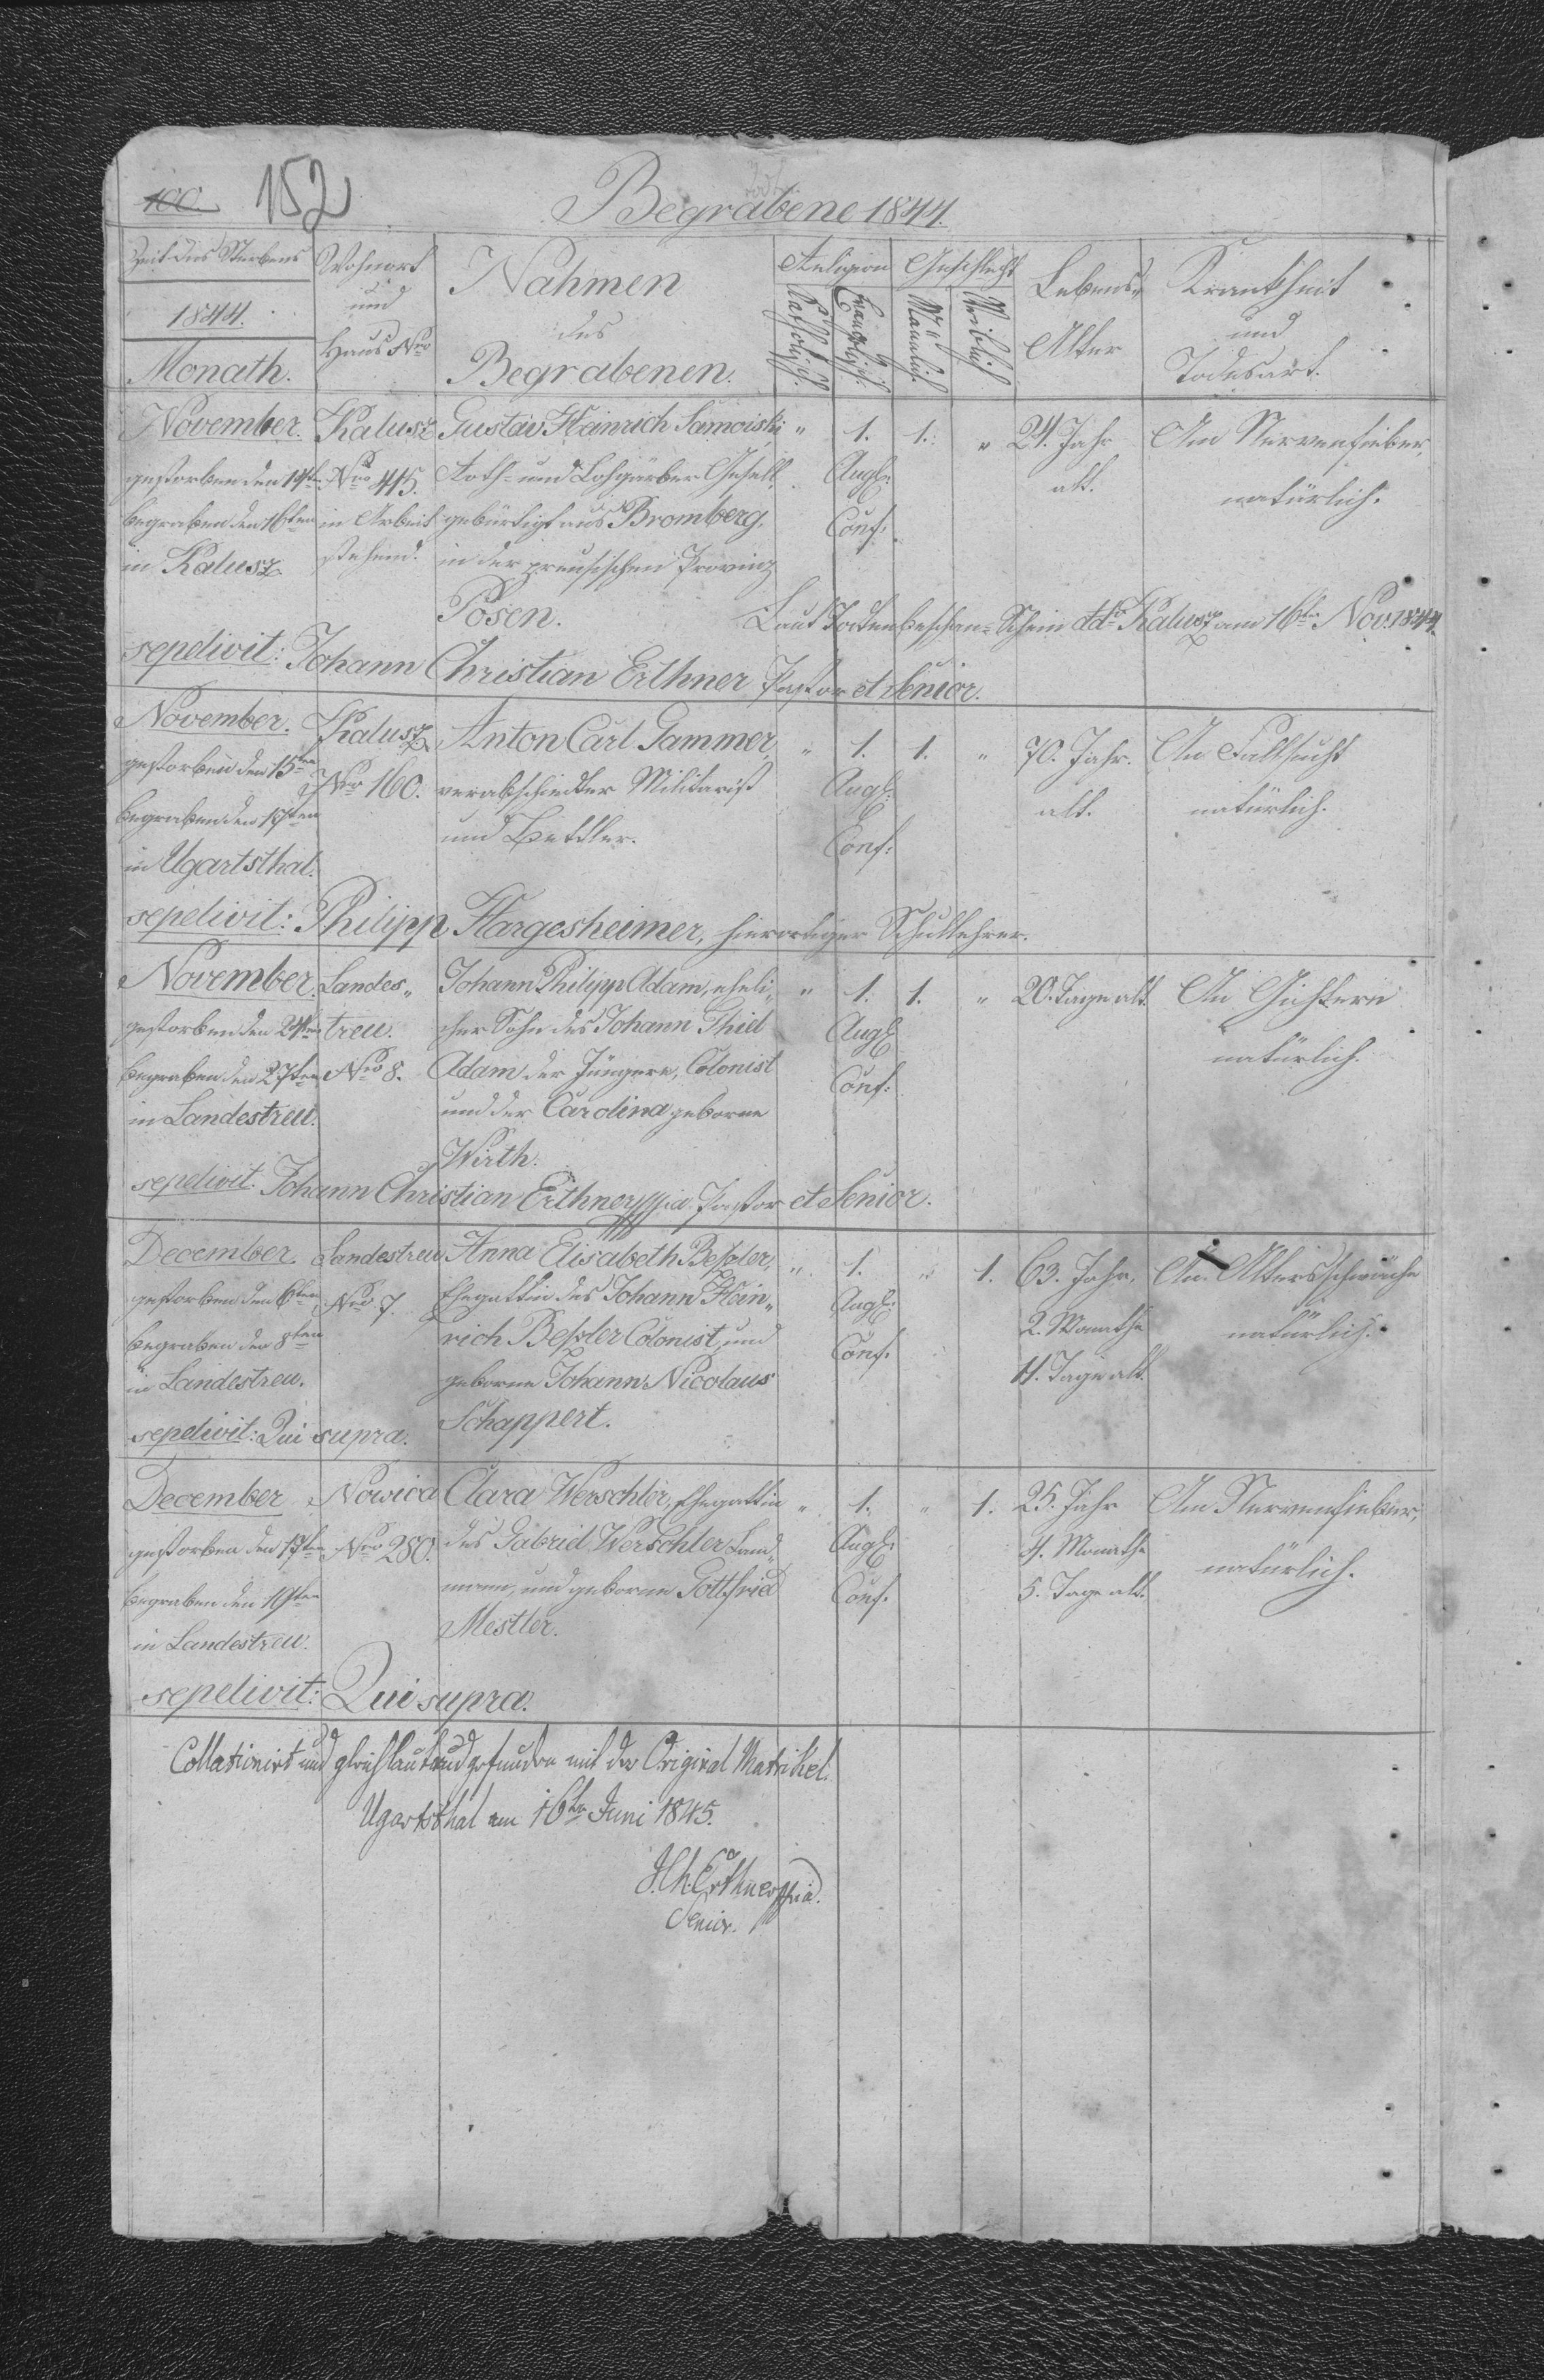 100. 152
Begrabene 1844.
Zeit des Sterbens
1844.
Monath.
Wohnort
und
Haus Nro
Nahmen
des
Begrabenen.
Religion
Catholisch.
Evangelisch.
Geschlecht
Männlich.
Weiblich
Lebens-
Alter
Krankheit
und
Todesart.
November. Kalusz Gustav Heinrich Samoiski " 1. 1. " 24. Jahr Am Nervenfieber,
gestorben den 14ten Nro 445. Roth- und Lohgärber Gesell, Augs: alt. natürlich.
begraben den 16ten in Arbeit gebürtigt aus Bromberg, Conf:
in Kalusz. stehend. in der preusischen Provinz
Posen. Laut Todtenbeschau-Schein ddo Kalusz am 16ten Nov. 1844.
sepelivit: Johann Christian Erthner Pastor et Senior.
November. Kalusz Anton Carl Gammer, " 1. 1. " 70. Jahr. An Fallsucht
gestorben den 15ten Nro 160. verabschiedter Militarist Augs: alt. natürlich.
begraben den 17ten und Bettler. Conf:
in Ugartsthal.
sepelivit: Philipp Hargesheimer, hierortiger Schullehrer.
November. Landes- Johann Philipp Adam, eheli- " 1. 1. " 20. Tage alt. An Gichtern
gestorben den 24ten treu. cher Sohn des Johann Thiel Augs: natürlich.
begraben den 27ten Nro 8. Adam der Jüngere, Colonist Conf:
in Landestreu. und der Carolina geborne
Wirth.
sepelivit: Johann Christian Erthner mpia Pastor et Senior.
December. Landestreu Anna Elisabeth Beßler, " 1. " 1. 63. Jahr, An Altersschwäche
gestorben den 6ten Nro 7. Ehegattin des Johann Hein- Augs: 2. Monathe natürlich.
begraben den 8ten rich Beßler Colonist, und Conf: 11. Tage alt.
in Landestreu. geborne Johann Nicolaus
sepelivit: Qui supra. Schappert.
December Nowica Clara Werschler, Ehegattin " 1. " 1. 25. Jahr Am Nervenfieber,
gestorben den 17ten Nro 280. des Gabriel Werschler Land- Augs: 4. Monathe natürlich.
begraben den 19ten mann, und geborne Gottfried Conf: 5. Tage alt.
in Landestreu. Mestler.
sepelivit: Qui supra.
Collationirt und gleichlautend gefunden mit der Original Matrikel.
Ugartsthal am 16ten Juni 1845.
J. Ch. Erthner mpia.
Senior.